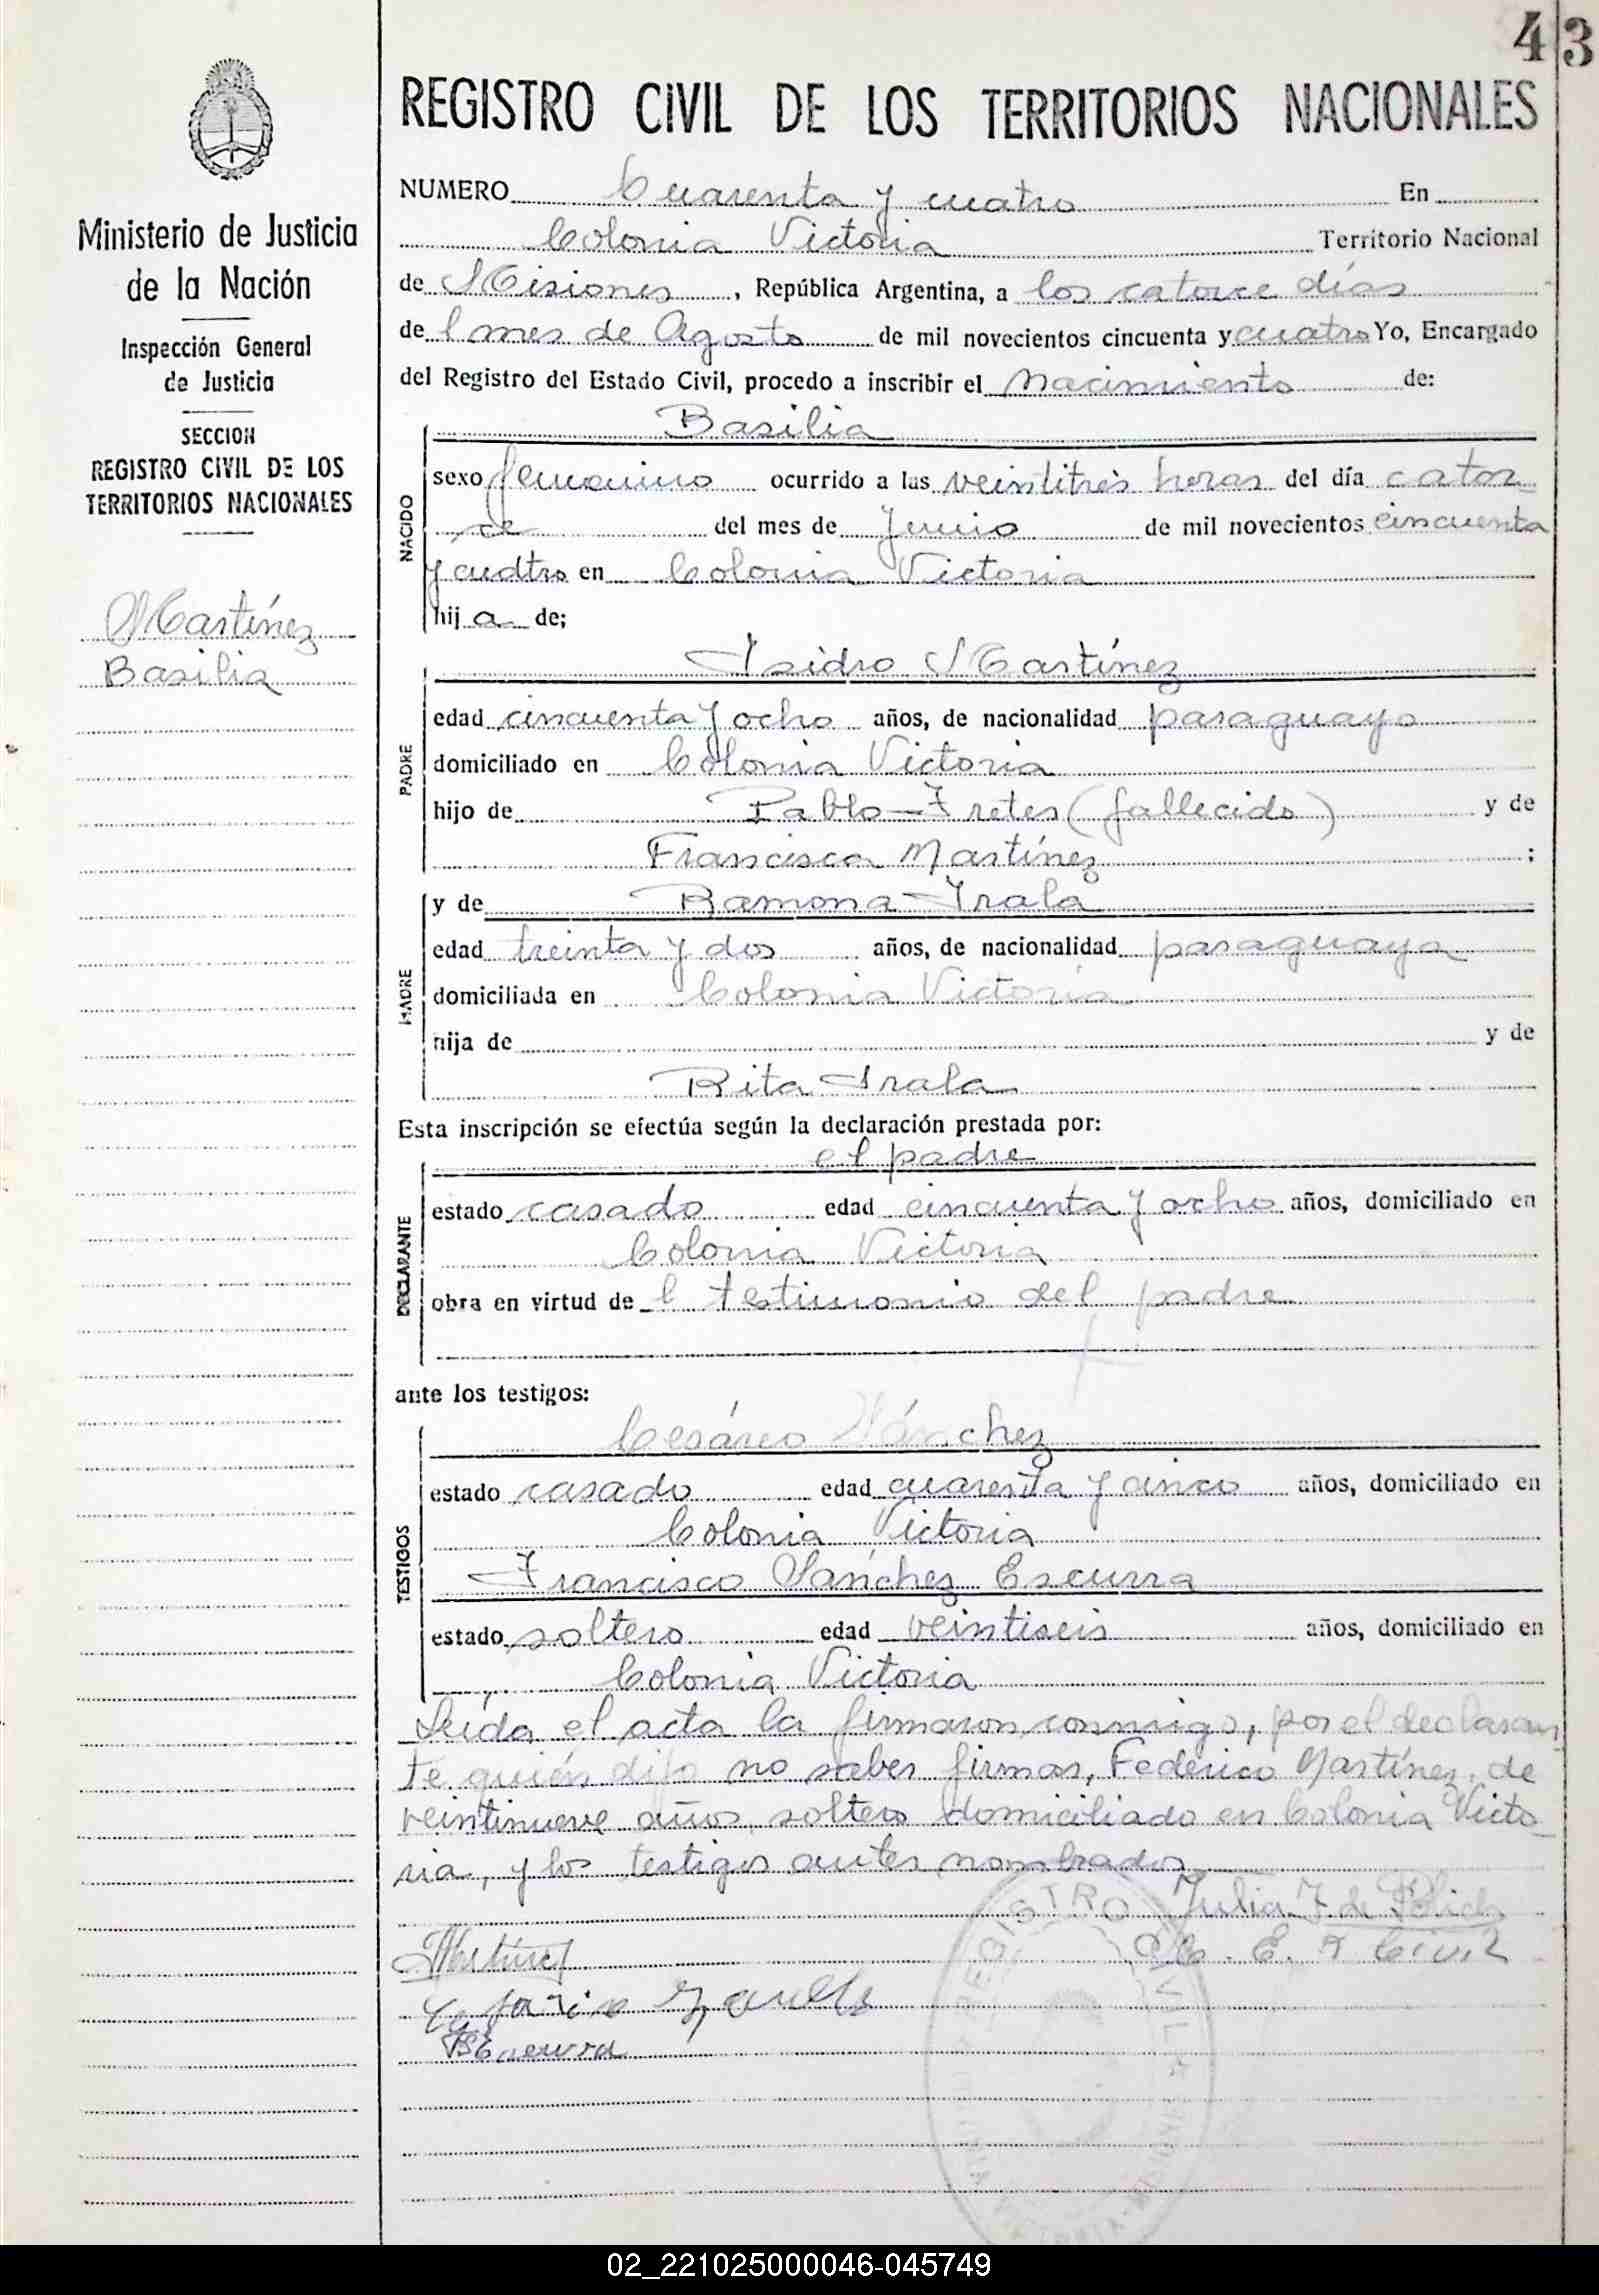 43
REGISTRO CIVIL DE LOS TERRITORIOS NACIONALES
Ministerio de Justicia
de la Nación
Inspección General
de Justicia
SECCION
REGISTRO CIVIL DE LOS
TERRITORIOS NACIONALES
Martínez
Basilia
NUMERO Cuarenta y cuatro En
Colonia Victoria Territorio Nacional
de Misiones, República Argentina, a los catorce días
del mes de Agosto de mil novecientos cincuenta y cuatro Yo, Encargado
del Registro del Estado Civil, procedo a inscribir el Nacimiento de:
Basilia
NACIDO
sexo femenino ocurrido a las veintitrés horas del día cator-
ce del mes de Junio de mil novecientos cincuenta
y cuatro en Colonia Victoria
hija de;
Isidro Martínez
PADRE
edad cincuenta y ocho años, de nacionalidad paraguayo
domiciliado en Colonia Victoria
hijo de Pablo Fretes (fallecido) y de
Francisca Martínez ;
y de Ramona Irala
MADRE
edad treinta y dos años, de nacionalidad paraguaya
domiciliada en Colonia Victoria
hija de y de
Rita Irala
Esta inscripción se efectúa según la declaración prestada por:
el padre
DECLARANTE
estado casado edad cincuenta y ocho años, domiciliado en
Colonia Victoria
obra en virtud del testimonio del padre
ante los testigos:
Cesáreo Sánchez
TESTIGOS
estado casado edad cuarenta y cinco años, domiciliado en
Colonia Victoria
Francisco Sánchez Escurra
estado soltero edad veintiseis años, domiciliado en
Colonia Victoria
Leída el acta la firmaron conmigo, por el declaran
te quién dijo no saber firmar, Federico Martínez, de
veintinueve años, soltero domiciliado en Colonia Victo-
ria, y los testigos antes nombrados
Julia F. de
E. R Civil
Martínez
02_221025000046-045749